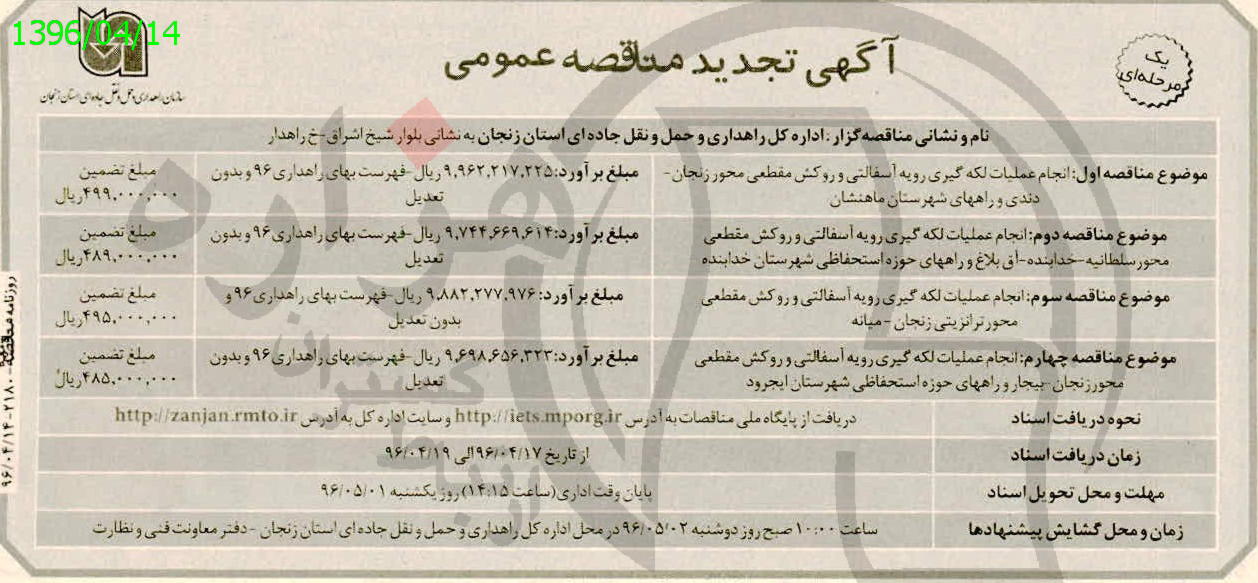 1396/04/14
سازمان راهداری و حمل و نقل جاده‌ای استان زنجان
آگهی تجدید مناقصه عمومی
یک
مرحله‌ای
نام و نشانی مناقصه‌گزار: اداره کل راهداری و حمل و نقل جاده ای استان زنجان به نشانی بلوار شیخ اشراق-خ راهدار
موضوع مناقصه اول: انجام عملیات لکه گیری رویه آسفالتی و روکش مقطعی محور زنجان-
دندی و راههای شهرستان ماهنشان
مبلغ برآورد: ۹,۹۶۲,۲۱۷,۲۲۵ ریال-فهرست بهای راهداری ۹۶ و بدون
تعدیل
مبلغ تضمین
۴۹۹,۰۰۰,۰۰۰ریال
موضوع مناقصه دوم: انجام عملیات لکه گیری رویه آسفالتی و روکش مقطعی
محور سلطانیه-خدابنده-آق بلاغ و راههای حوزه استحفاظی شهرستان خدابنده
مبلغ برآورد: ۹,۷۴۴,۶۶۹,۶۱۴ ریال-فهرست بهای راهداری ۹۶ و بدون
تعدیل
مبلغ تضمین
۴۸۹,۰۰۰,۰۰۰ریال
موضوع مناقصه سوم: انجام عملیات لکه گیری رویه آسفالتی و روکش مقطعی
محور ترانزیتی زنجان - میانه
مبلغ برآورد: ۹,۸۸۲,۲۷۷,۹۷۶ ریال-فهرست بهای راهداری ۹۶ و
بدون تعدیل
مبلغ تضمین
۴۹۵,۰۰۰,۰۰۰ریال
موضوع مناقصه چهارم: انجام عملیات لکه گیری رویه آسفالتی و روکش مقطعی
محور زنجان-بیجار و راههای حوزه استحفاظی شهرستان ایجرود
مبلغ برآورد: ۹,۶۹۸,۶۵۶,۳۲۳ ریال-فهرست بهای راهداری ۹۶ و بدون
تعدیل
مبلغ تضمین
۴۸۵,۰۰۰,۰۰۰ریال
نحوه دریافت اسناد
دریافت از پایگاه ملی مناقصات به آدرس http://iets.mporg.ir و سایت اداره کل به آدرس http://zanjan.rmto.ir
زمان دریافت اسناد
از تاریخ ۹۶/۰۴/۱۷ الی ۹۶/۰۴/۱۹
مهلت و محل تحویل اسناد
پایان وقت اداری (ساعت ۱۴:۱۵) روز یکشنبه ۹۶/۰۵/۰۱
زمان و محل گشایش پیشنهادها
ساعت ۱۰:۰۰ صبح روز دوشنبه ۹۶/۰۵/۰۲ در محل اداره کل راهداری و حمل و نقل جاده ای استان زنجان - دفتر معاونت فنی و نظارت
روزنامه مناقصه - ۲۱۸۰ - ۹۶/۰۴/۱۴
هزاره